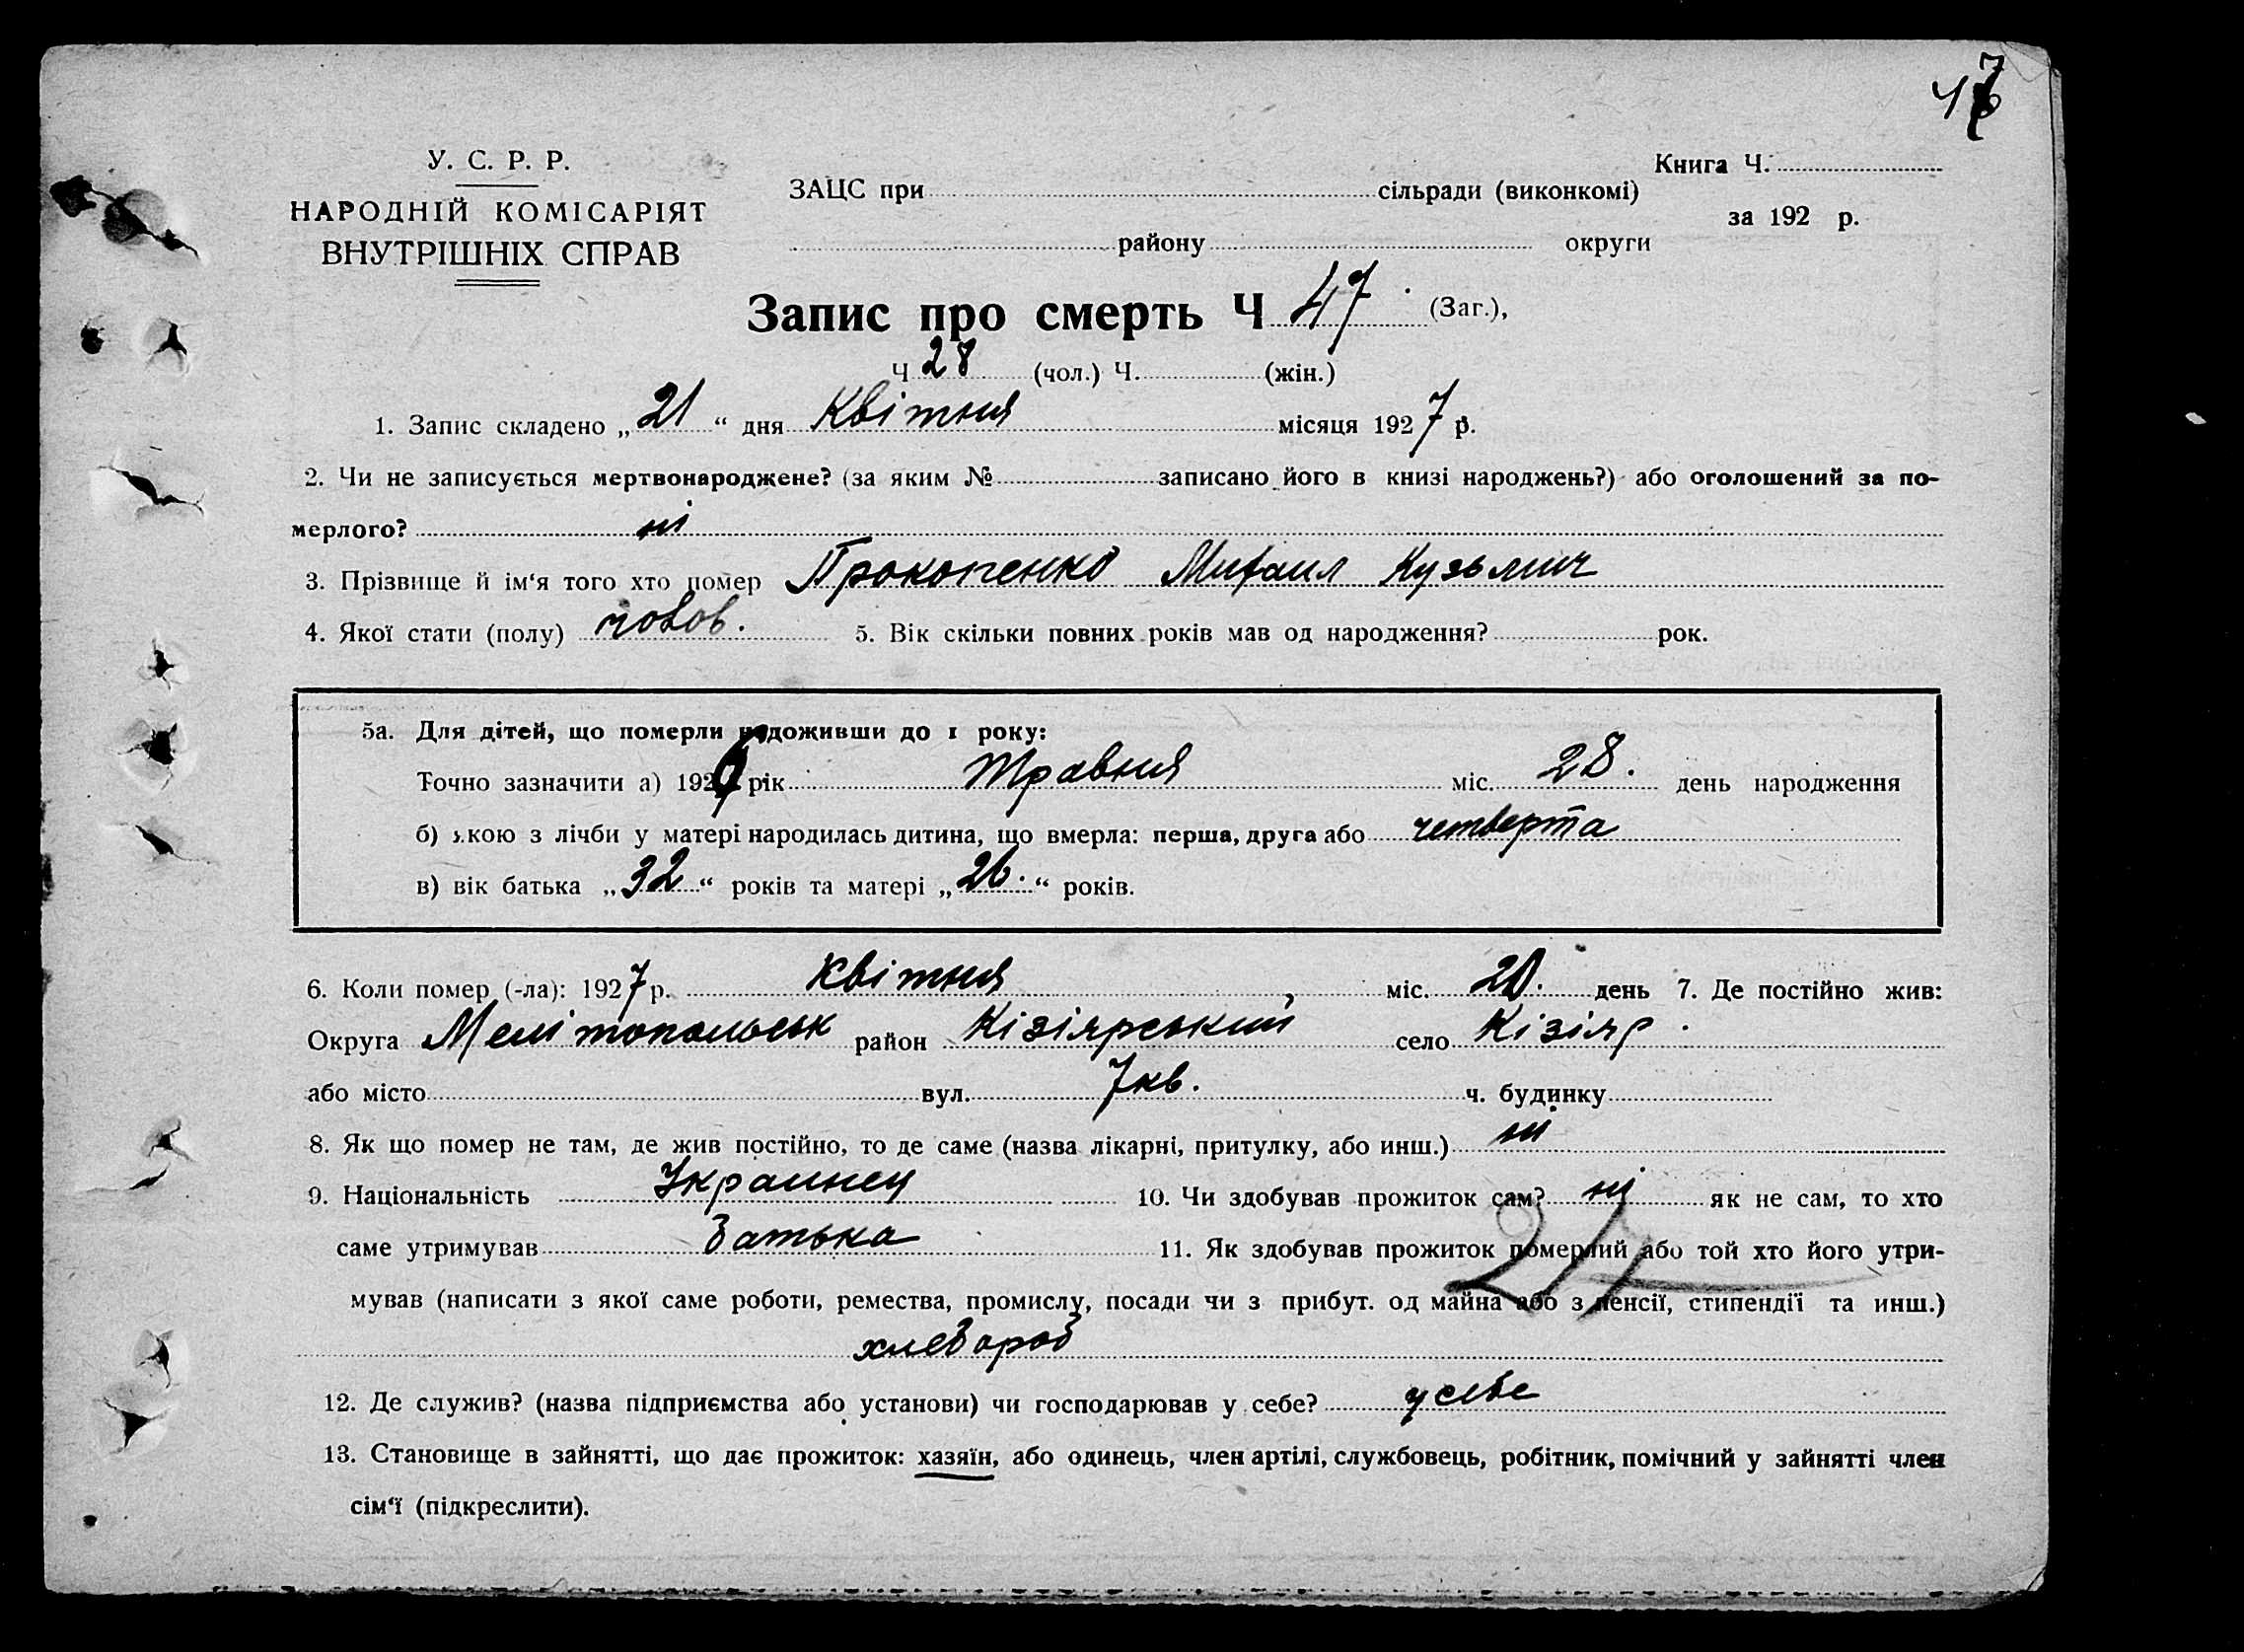 47
У. С. Р. Р.
НАРОДНІЙ КОМІСАРІЯТ
ВНУТРІШНІХ СПРАВ
ЗАЦС при сільради (виконкомі)
району округи
Книга Ч.
за 192 р.
Запис про смерть Ч 47 (Заг.),
Ч 28 (чол.) Ч. (жін.)
1. Запис складено „21“ дня Квітня місяця 1927 р.
2. Чи не записується мертвонароджене? (за яким № записано його в книзі народжень?) або оголошений за по-
мерлого? ні
3. Прізвище й ім‘я того хто помер Прокопенко Михаил Кузьмич
4. Якої стати (полу) чолов. 5. Вік скільки повних років мав од народження? рок.
5а. Для дітей, що померли недоживши до 1 року:
Точно зазначити а) 1926 рік Травня міс. 28. день народження
б) якою з лічби у матері народилась дитина, що вмерла: перша, друга або четверта
в) вік батька „32“ років та матері „26.“ років.
6. Коли помер (-ла): 1927 р. Квітня міс. 20. день 7. Де постійно жив:
Округа Мелітопольськ район Кізіярський село Кізіяр.
або місто вул. 7 кв. ч. будинку
8. Як що помер не там, де жив постійно, то де саме (назва лікарні, притулку, або инш.) ні
9. Національність Украинец 10. Чи здобував прожиток сам? ні як не сам, то хто
саме утримував Батька 11. Як здобував прожиток померлий або той хто його утри-
мував (написати з якої саме роботи, ремества, промислу, посади чи з прибут. од майна або з пенсії, стипендії та инш.)
хлебороб
12. Де служив? (назва підприємства або установи) чи господарював у себе? у себе
13. Становище в зайнятті, що дає прожиток: хазяїн, або одинець, член артілі, службовець, робітник, помічний у зайнятті член
сім‘ї (підкреслити).